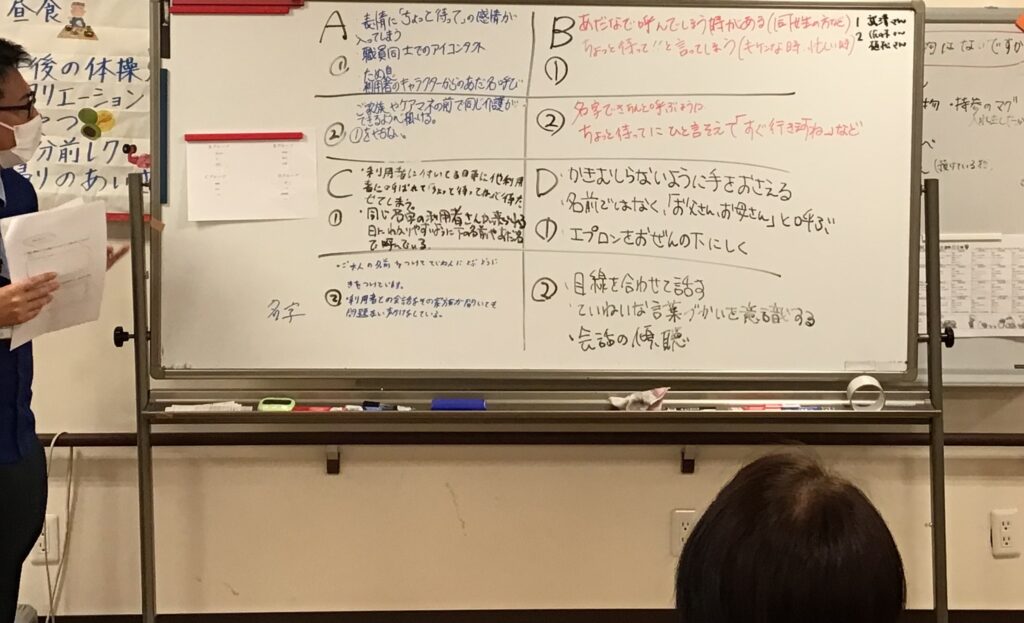 昼食
後の体操
リエーション
やつ
分前レク
A
表情に「ちょっと待って」の感情が
入ってしまう
①
職員同士でのアイコンタクト
利用者のキャラクターからのあだ名呼び
②
ご家族やケアマネの前で同じ介護が
できるように心掛ける。
①をやらない。
B
あだなで呼んでしまう時がある(同姓の方など)
ちょっと待って!!と言ってしまう(キケンな時、忙しい時)
①
②
名字でさんと呼ぶように
ちょっと待ってにひと言そえて「すぐ行きますね」など
C
・利用者に付いてる日事に他利用
者に呼ばれて「ちょっと待って」
でてしまう。
①
・同じ名字の利用者さんが来られる
日にわかりやすいように下の名前やあだ名
で呼んでいる
②
きをつけています。
・利用者との会話をその家族が聞いても
問題ない声かけをしている。
名字
D
かきむしらないように手をおさえる
名前ではなく、「お父さん、お母さん」と呼ぶ
①
エプロンをおぜんの下にしく
②
・目線を合わせて話す
ていねいな言葉づかいを意識する
・会話の傾聴
1
2
はないですか
物 ・持参のマグ